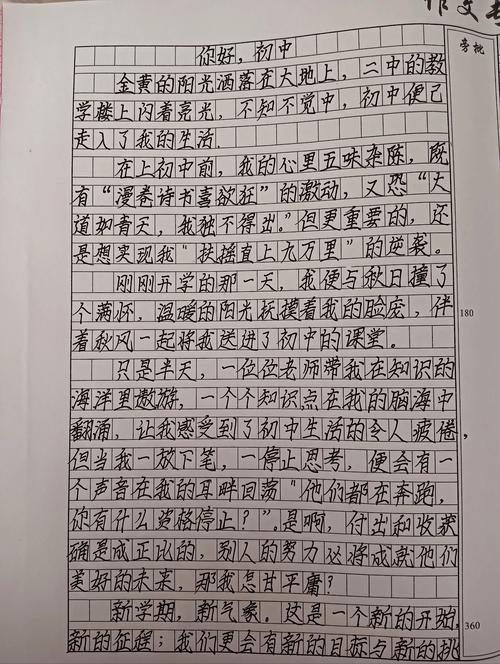 作文
旁批
你好，初中
金黄的阳光洒落在大地上，二中的教
学楼上闪着亮光，不知不觉中，初中便已
走入了我的生活.
在上初中前，我的心里五味杂陈，既
有“漫卷诗书喜欲狂”的激动，又恐“大
道如青天，我独不得出。”但更重要的，还
是想实现我“扶摇直上九万里”的逆袭。
刚刚开学的那一天，我便与秋日撞了
个满怀，温暖的阳光抚摸着我的脸庞，伴
着秋风一起将我送进了初中的课堂。
180
只是半天，一位位老师带我在知识的
海洋里遨游，一个个知识点在我的脑海中
翻涌，让我感受到了初中生活的令人疲倦，
但当我一放下笔，一停止思考，便会有一
个声音在我的耳畔回荡“他们都在奔跑，
你有什么资格停止？”。是啊，付出和收获
确是成正比的，别人的努力必将成就他们
美好的未来，那我怎甘平庸？
新学期，新气象。这是一个新的开始，
360
新的征程；我们更会有新的目标与新的挑